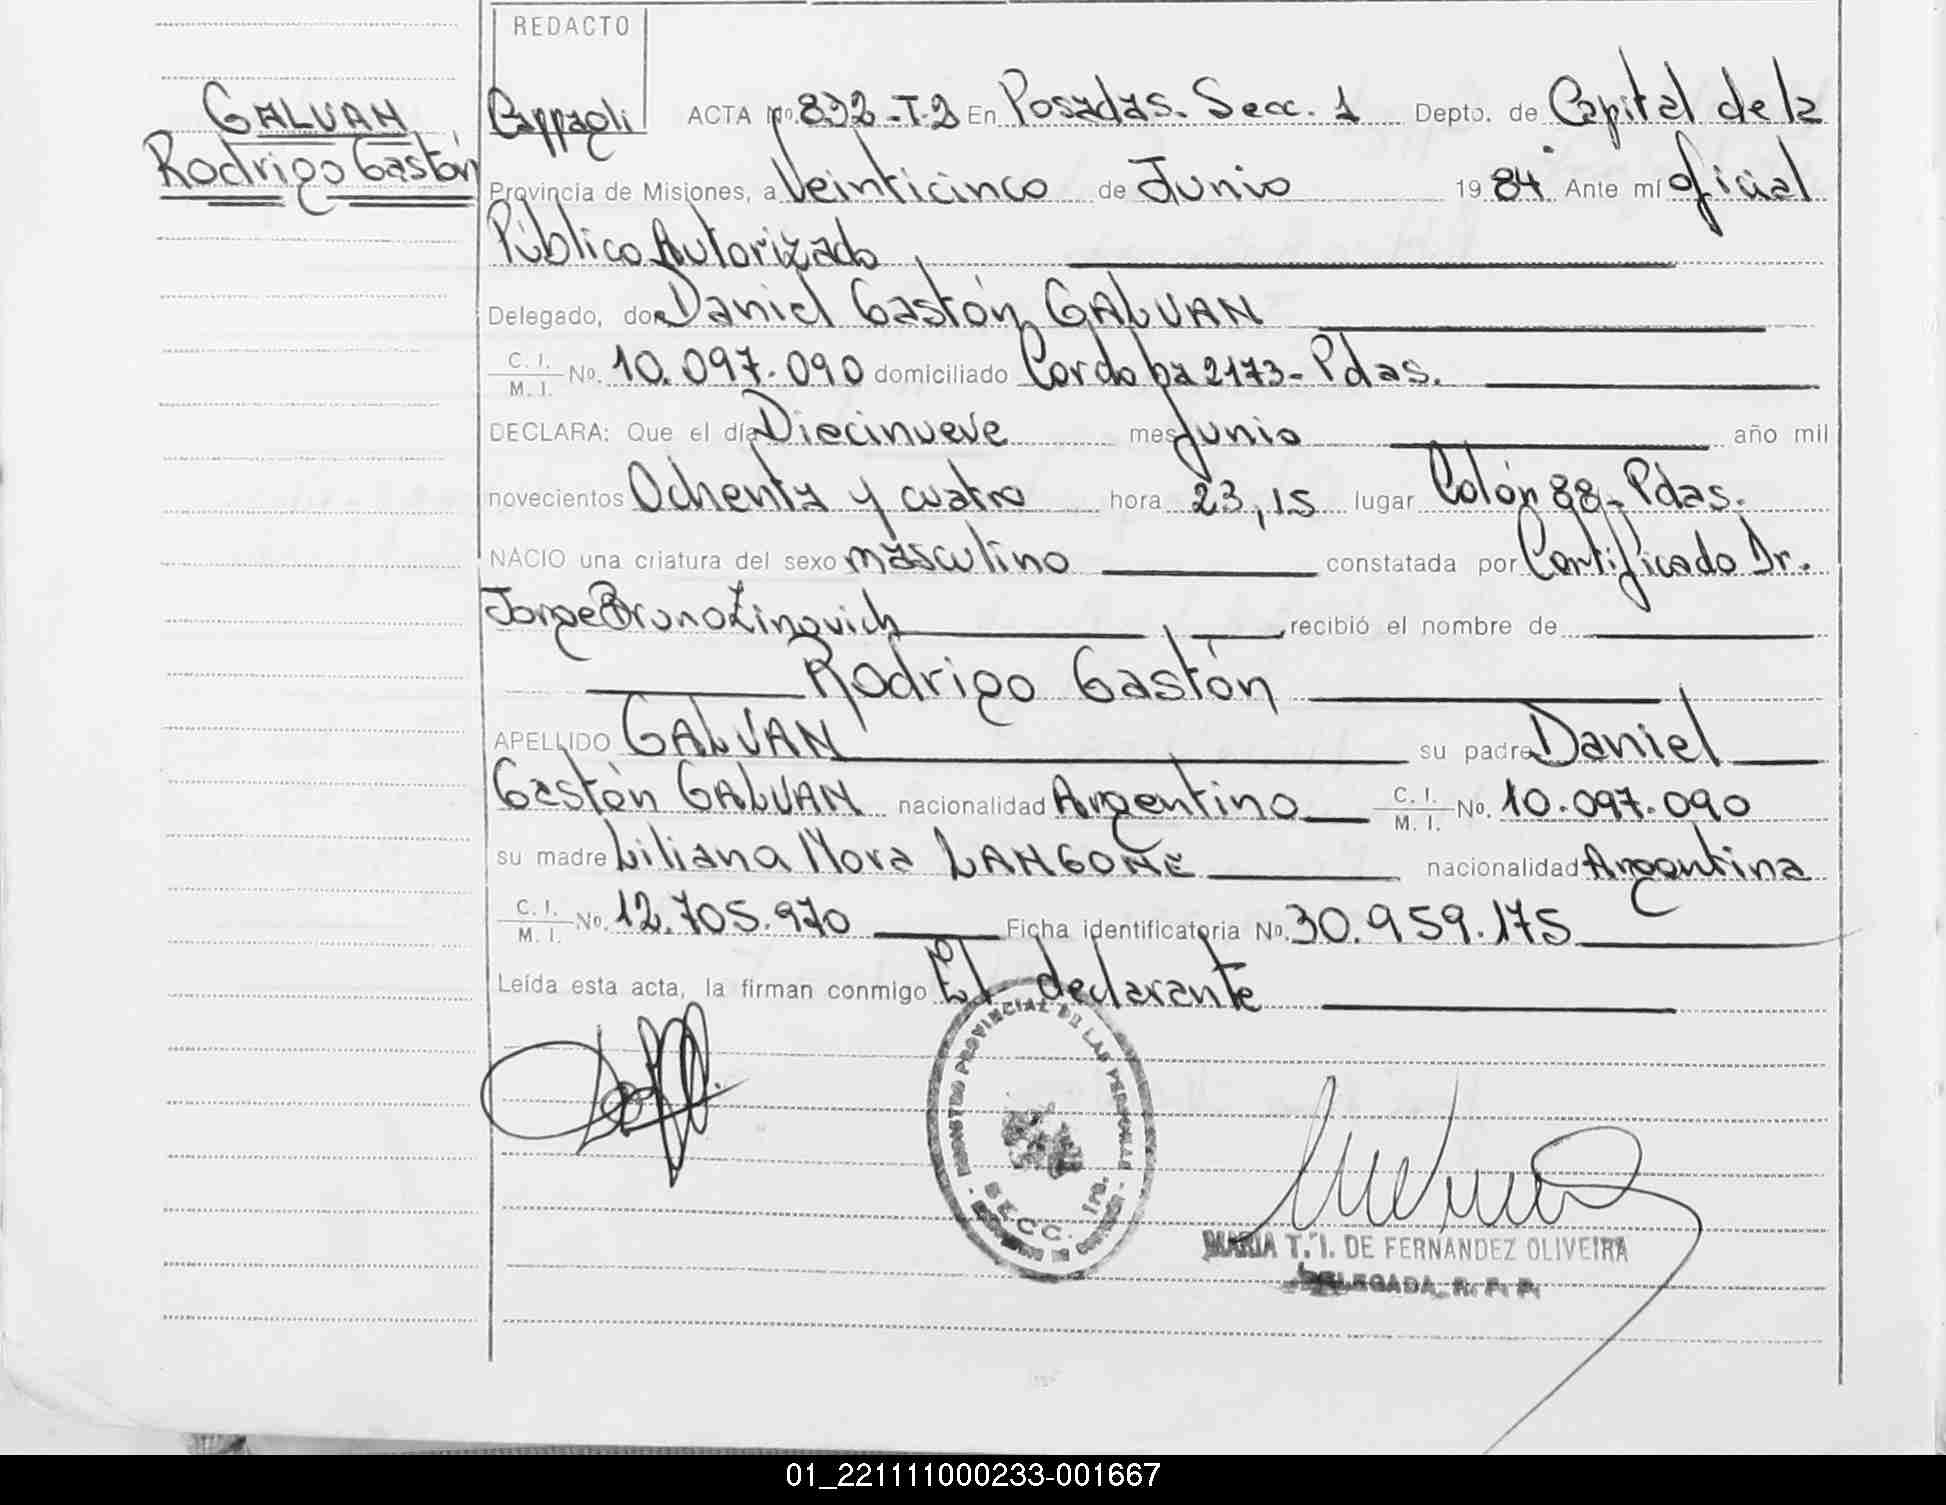 REDACTO
GALVAN
Rodrigo Gastón
Cappagli ACTA No. 832-T.2 En Posadas. Secc. 1 Depto. de Capital de la
Provincia de Misiones, a Veinticinco de Junio 1984 Ante mí oficial
Público Autorizado
Delegado, don Daniel Gastón GALVAN
C. I. M. I. No. 10.097.090 domiciliado Cordoba 2173-Pdas.
DECLARA: Que el día Diecinueve mes Junio año mil
novecientos Ochenta y cuatro hora 23,15 lugar Colón 88-Pdas.
NACIO una criatura del sexo masculino constatada por Certificado Dr.
Jorge Bruno Zinovich, recibió el nombre de
Rodrigo Gastón
APELLIDO GALVAN su padre Daniel
Gastón GALVAN nacionalidad Argentino C. I. M. I. No. 10.097.090
su madre Liliana Nora LANGONE nacionalidad Argentina
C. I. M. I. No. 12.705.970 Ficha identificatoria No. 30.959.175
Leída esta acta, la firman conmigo El declarante
REGISTRO PROVINCIAL DE LAS PERSONAS
SECC. 1ra.
MARIA T. I. DE FERNANDEZ OLIVEIRA
DELEGADA R. P. P.
01_221111000233-001667